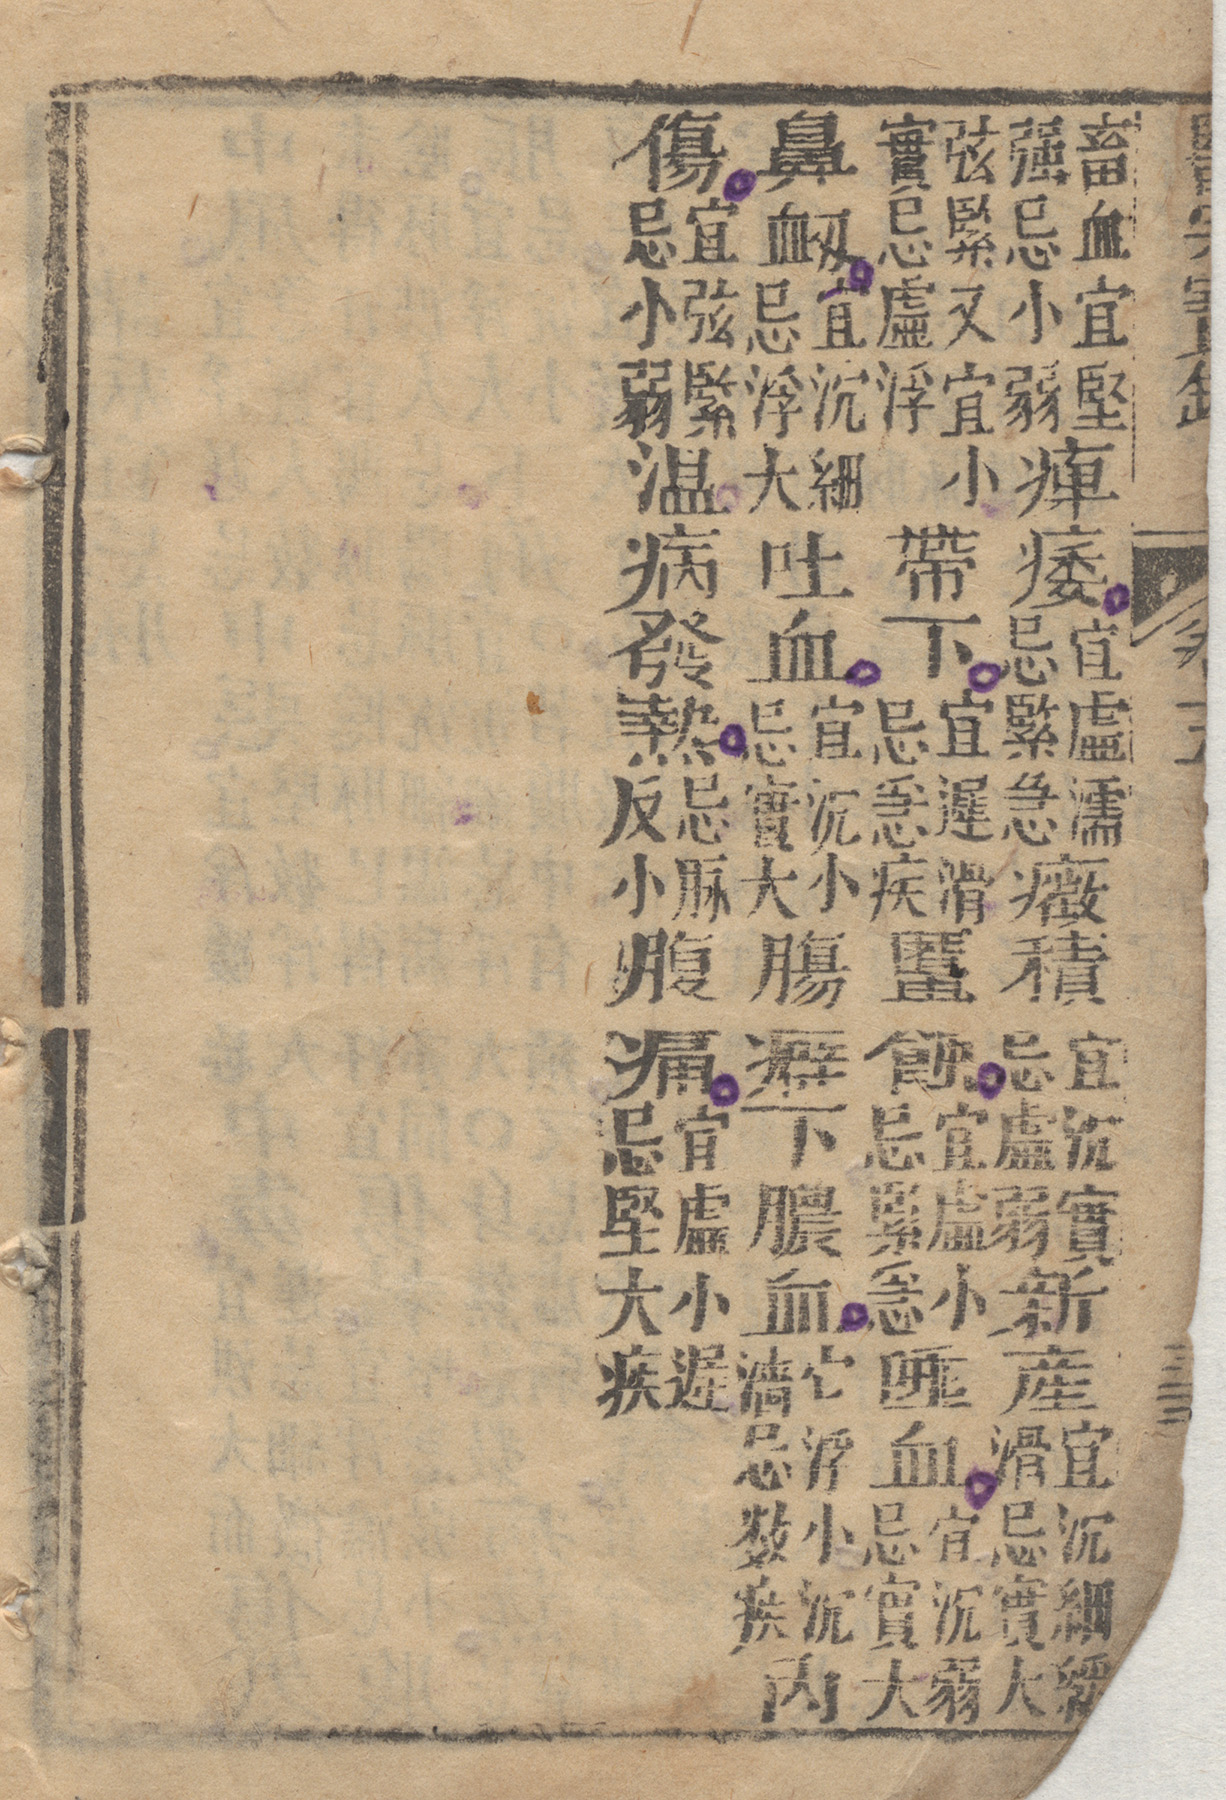 畜血宜堅强忌小弱痿宜虛濡忌緊急癥積宜沉實忌虛弱新産宜沉細緩滑忌實大
弦緊又宜小實忌虛浮帶下宜遲滑忌急疾䘌蝕宜虛小忌緊急血宜沉弱忌實大
鼻衂宜沉細忌浮大吐血宜沉小忌實大腸癖下膿血浮小沉忌数疾內
傷宜弦緊忌小弱温病發熱忌脉反小腹痛宜虛小遲忌堅大疾